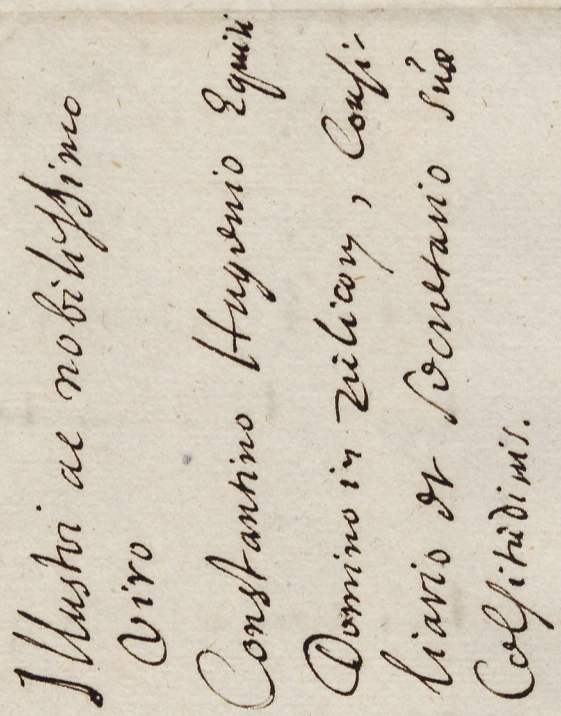 Illustri ac nobilissimo
Viro
Constantino Hugenio Equiti
Domino in Zulicom, Consi-
liario et Secretario suæ
Celsitudinis.